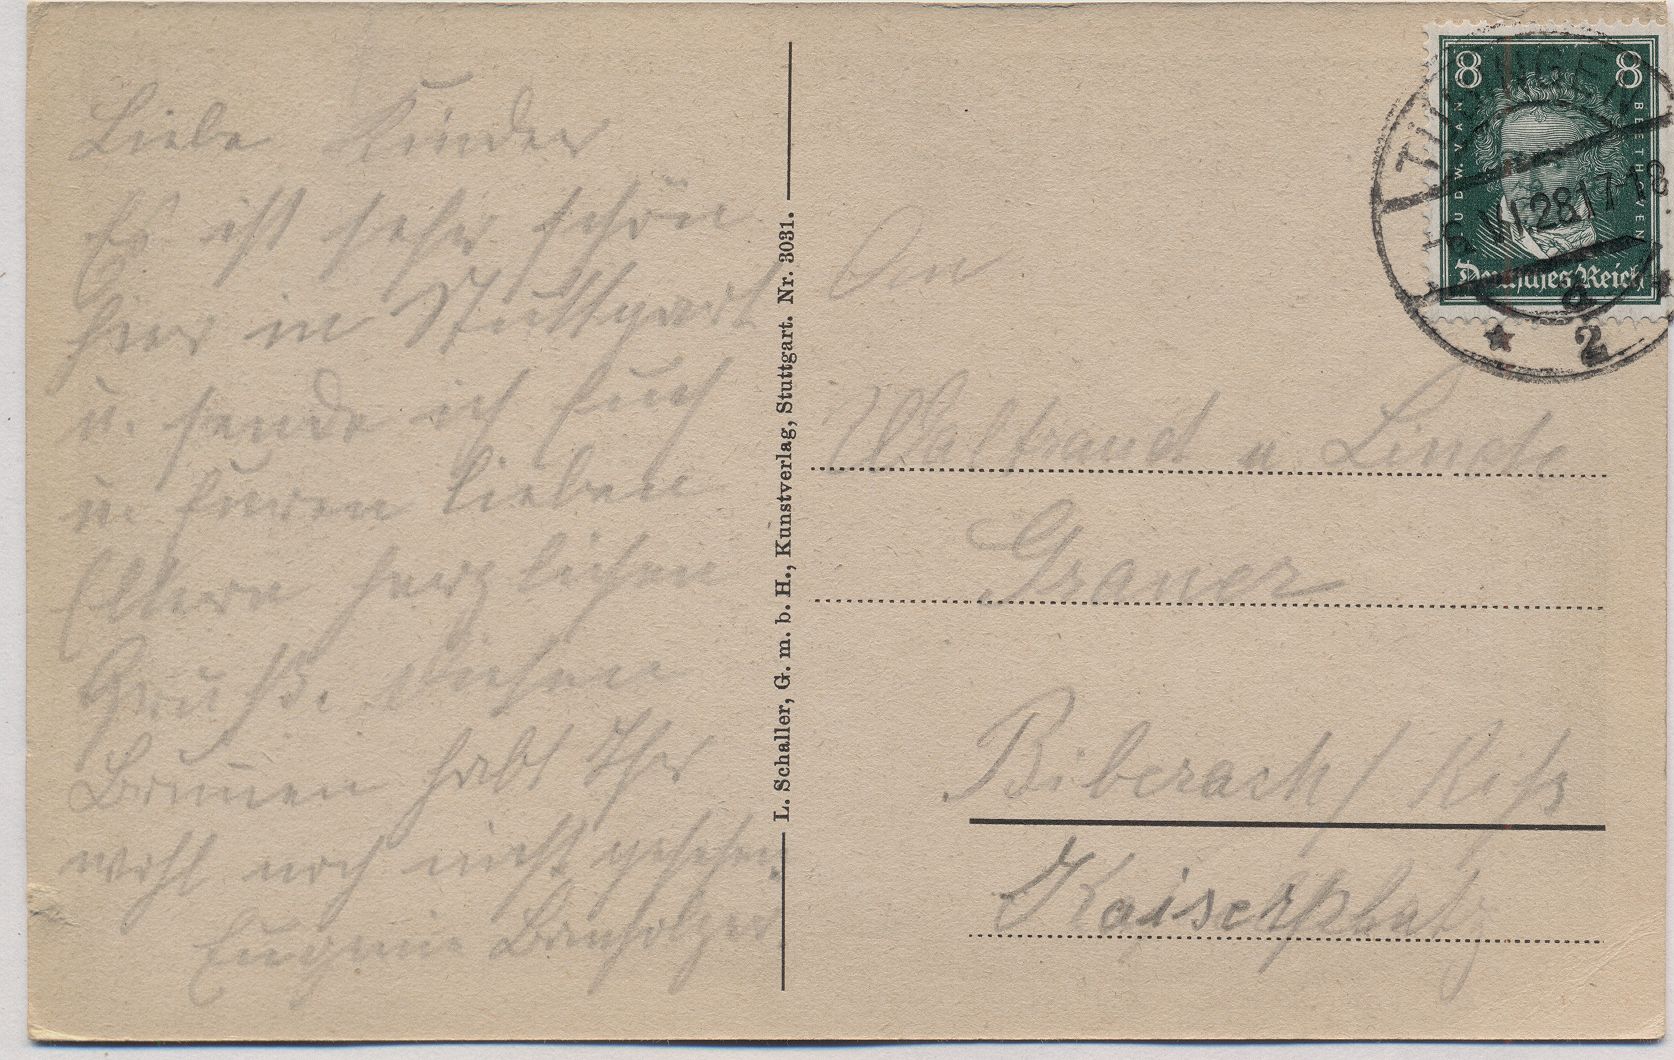 Liebe Kinder
Es ist sehr schön
hier in Stuttgart
u. sende ich Euch
u. Euren lieben
Eltern herzlichen
Gruß. Diesen
Brunnen habt Ihr
wohl noch nicht gesehen.
Eugenie
L. Schaller, G. m. b. H., Kunstverlag, Stuttgart. Nr. 3031.
8 8
LUDW. V. VAN BEETHOVEN
Deutsches Reich
VII.28.17-18
* 2
An
Waltraud u Linde
Graner
Biberach/Riß
Kaiserplatz